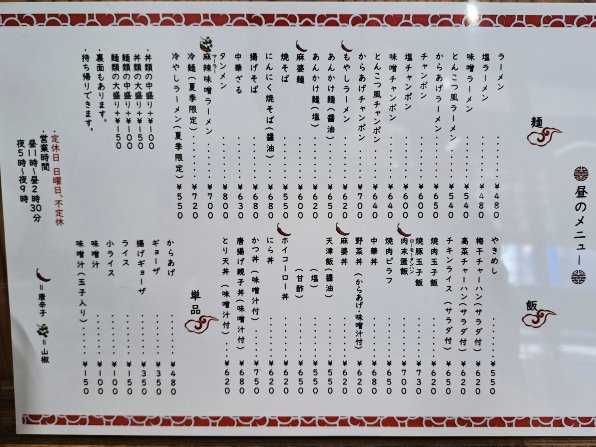 昼のメニュー
麺
ラーメン ¥480
塩ラーメン ¥480
味噌ラーメン
とんこつ風ラーメン ¥540
からあげラーメン
チャンポン
塩チャンポン
味噌チャンポン ¥600
とんこつ風チャンポン ¥640
からあげチャンポン ¥700
もやしラーメン ¥600
あんかけ麺(醤油) ¥650
あんかけ麺(塩)
麻婆麺 ¥600
焼そば ¥550
にんにく焼そば(醤油) ¥600
揚げそば
中華ざる
タンメン ¥800
麻辣味噌ラーメン ¥700
冷麺(夏季限定) ¥720
冷やしラーメン(夏季限定) ¥550
・丼類の中盛り+¥100
丼類の大盛り+¥150
麺類の中盛り+¥100
麺類の大盛り+¥150
・裏面もあります。
・持ち帰りできます。
・定休日 日曜日、不定休
・営業時間
昼11時〜昼2時30分
夜5時〜夜9時
飯
やきめし ¥550
梅干チャーハン(サラダ付) ¥620
高菜チャーハン(サラダ付) ¥620
チキンライス(サラダ付) ¥650
焼肉玉子飯 ¥620
焼豚玉子飯 ¥730
肉末蛋飯 ¥700
焼肉ピラフ ¥650
中華丼 ¥680
野菜丼(からあげ・味噌汁付) ¥620
麻婆丼 ¥620
天津飯(醤油) ¥550
(塩) ¥550
(甘酢) ¥600
ホイコーロー丼 ¥650
にら丼 ¥620
かつ丼(味噌汁付) ¥750
唐揚げ親子丼(味噌汁付) ¥680
とり天丼(味噌汁付) ¥620
単品
からあげ ¥480
ギョーザ ¥350
揚げギョーザ ¥350
ライス ¥150
小ライス ¥100
味噌汁 ¥100
味噌汁(玉子入り) ¥150
=唐辛子
=山椒